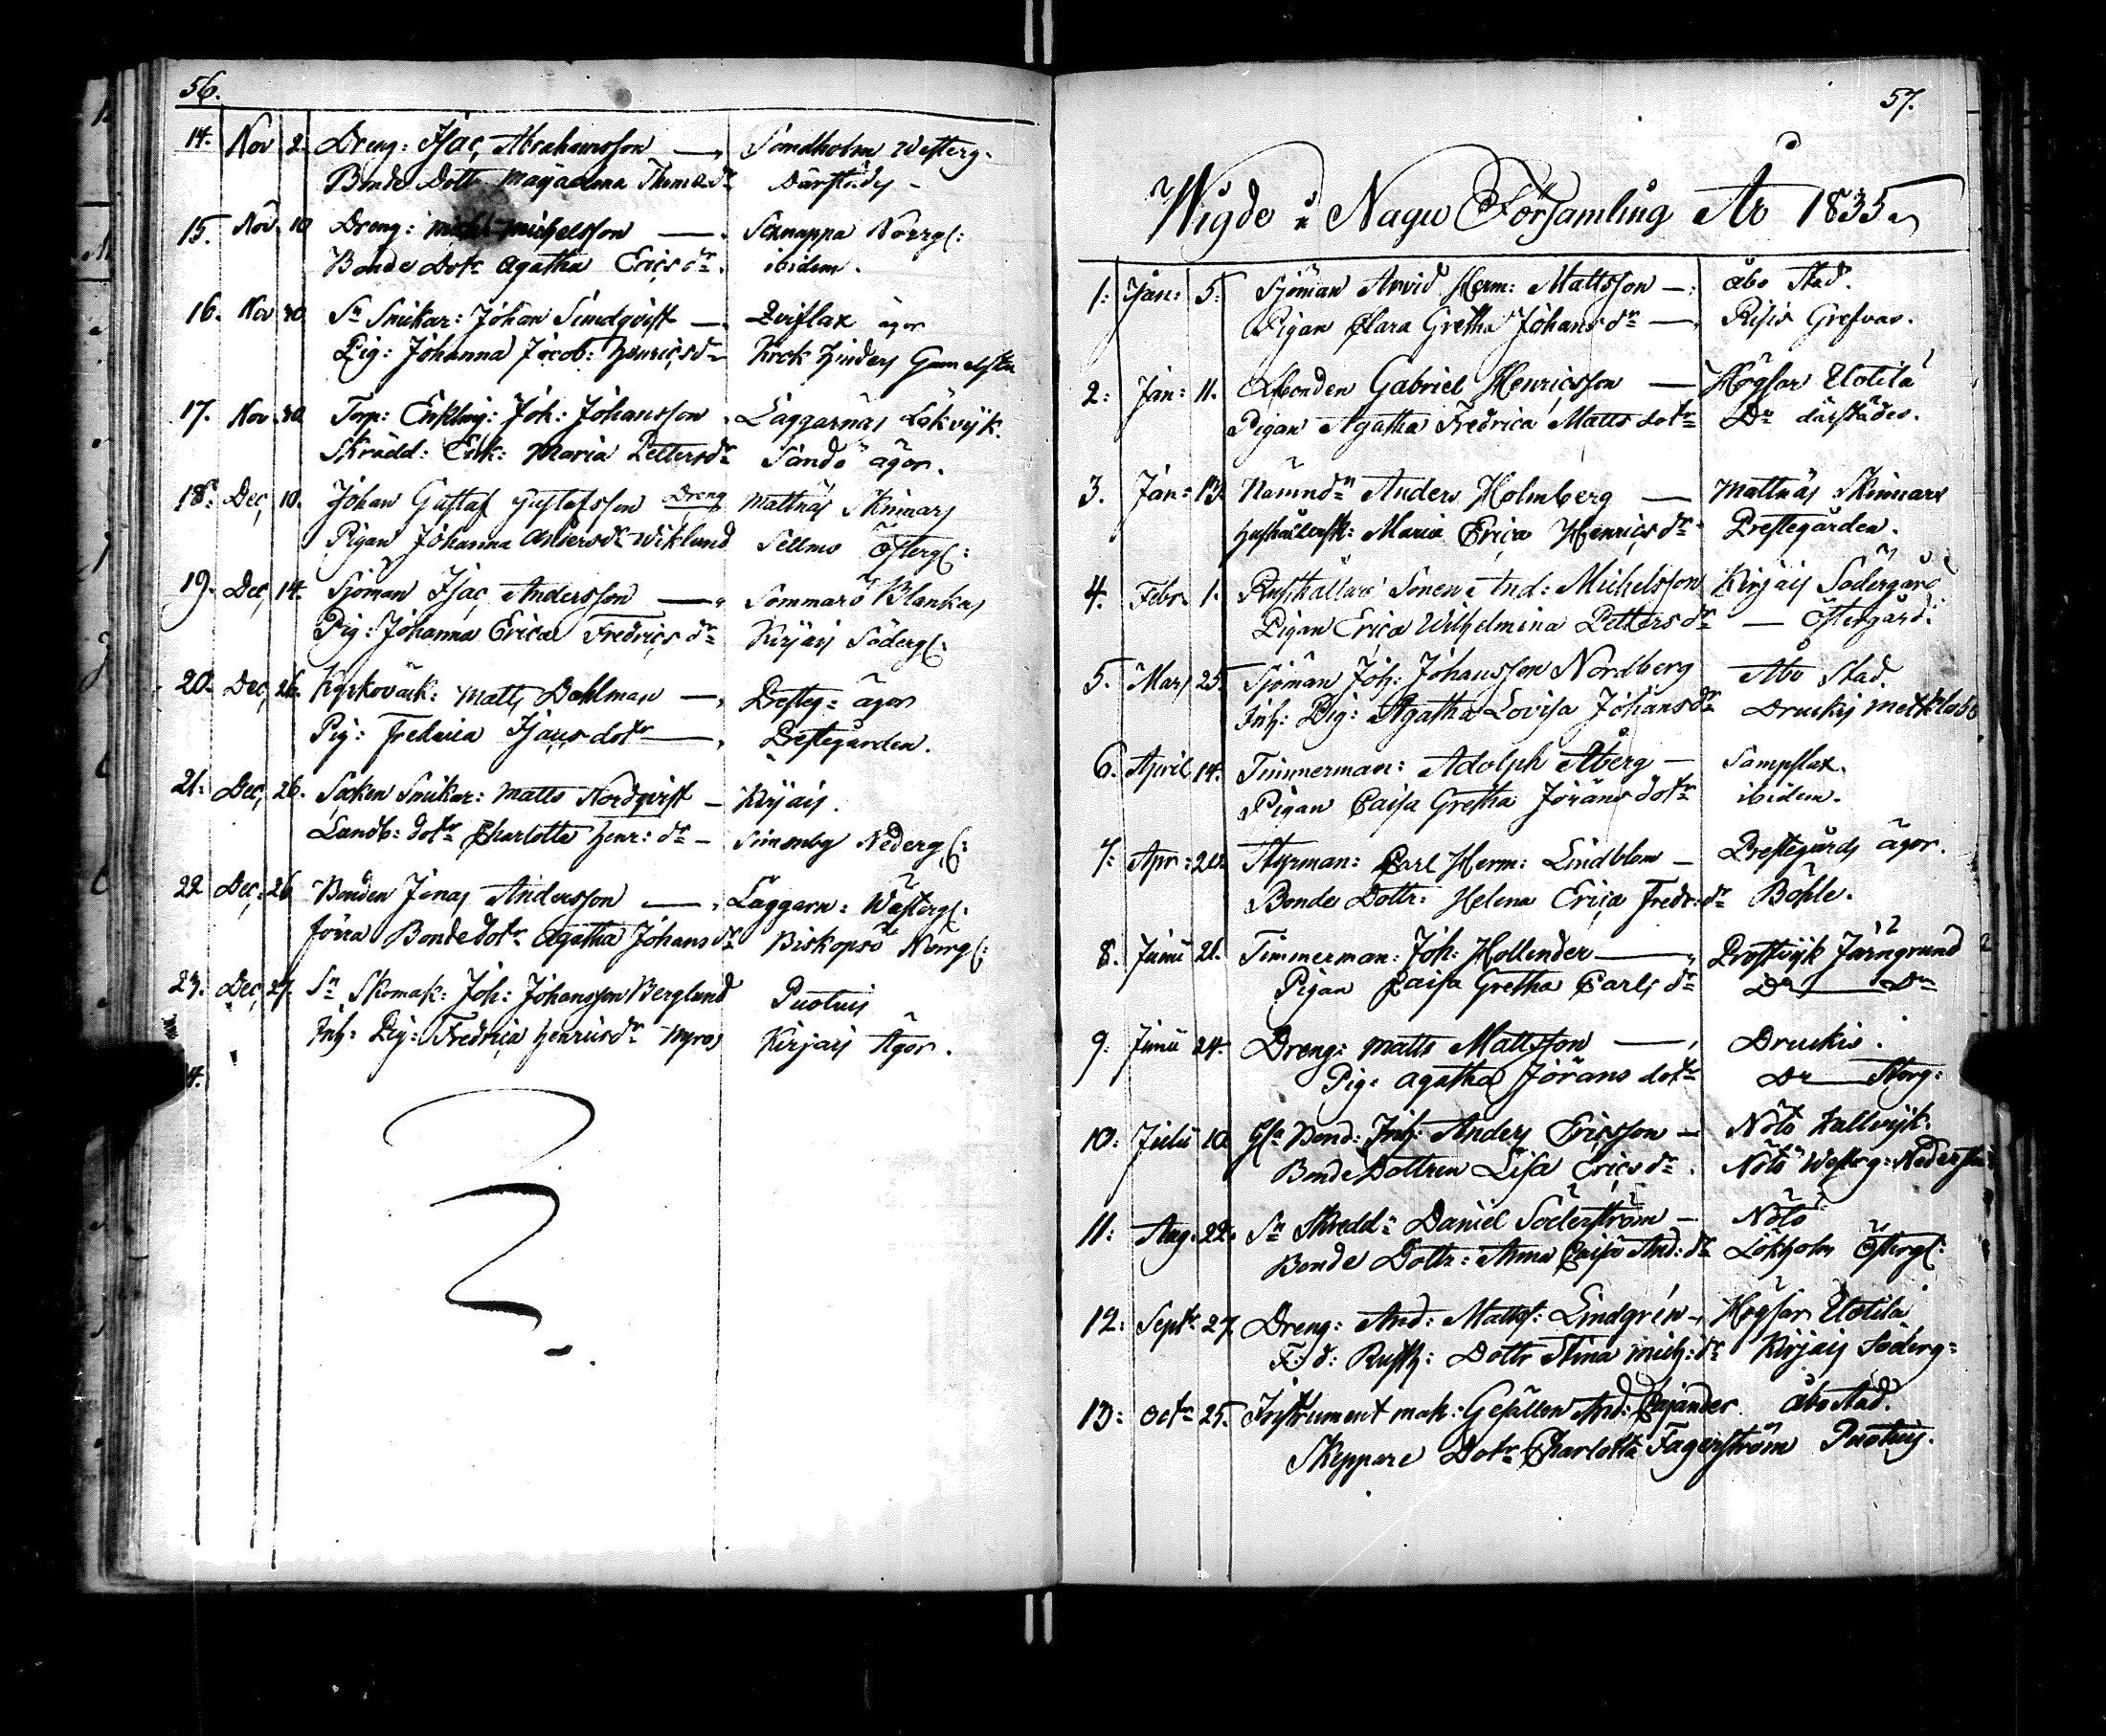 56.
14. Nov 2. Dreng: Isac Abrahamsson — Sandholm Westerg:
Bonde Dottr Magdalena Thomasdr Därstädes
15. Nov 10 Dreng: Mich: Michelsson — Sexnappa Norrg:
Bonde Dotr Agatha Ericsdr. ibidem.
16. Nov 30. Sn Snikar: Johan Sundqvist — Qviflax ägor
Pig: Johanna Jacob: Henricsdr Krok Hinders Gamelstu
17. Nov. 30 Torp: Enkling: Joh: Johansson. Laggarnäs Lökvijk.
Skrädd: Enk: Maria Pettersdr Sandö ägor.
18. Dec, 10. Johan Gustaf Gustafsson Dreng Mattnäs Skinnars
Pigan Johanna Andersdr Wiklund Sellmo Österg:
19. Dec, 14. Sjöman Isac Andersson — Sommarö Blankas
Pig: Johanna Erica Fredricsdr Kirjais Söderg:
20. Dec, 26. Kyrkoväck: Matts Dahlman — Presteg: ägor
Pig: Fredrica Isacsdotr — Prestegården.
21: Dec, 26. Socken Snikar: Matts Nordqvist — Kirjais.
Landb: dotr Charlotta Henr: dr — Simonby Nederg:
22 Dec: 26 Bonden Jonas Andersson — Laggarn: Wästerg:
förra Bondedotr Agatha Johansdr Biskopsö Norrg:
23. Dec, 27. Sn Skomak: Joh: Johansson Berglund Puotuis
Inh: Pig: Fredrica Henricsdr Myra Kirjais Ägor.
4.
57.
Wigde i Nagu Församling År 1835.
1: Jan: 5: Sjöman Arvid Herm: Mattsson — Åbo Stad.
Pigan Clara Gretha Johansdr — Risis Grefvas.
2: Jan: 11. Åbonden Gabriel Henricsson — Högsar Utotila
Pigan Agatha Fredrica Matts dotr Do därstädes.
3. Jan: 13. Nämndn Anders Holmberg — Mattnäs Skinnars
Hushållersk: Maria Erica Henricsdr Prestegården.
4. Febr. 1. Rusthållare Sonen And: Michelsson Kirjais Södergård
Pigan Erica Wilhelmina Pettersdr — Östergård.
5. Mars 25. Sjöman Joh: Johansson Nordberg Åbo Stad
Inh: Pig: Agatha Lovisa Johansdr Druckis
6. April 14. Timmerman: Adolph Åberg — Sampflax.
Pigan Caisa Gretha Jöransdotr ibidem.
7: Apr: 20. Styrman: Carl Herm: Lindblom — Prestegårds ägor.
Bonde Dottr: Helena Erica Fredr: dr Böhle.
8. Junii 21. Timmerman: Joh: Hollender — Prostvijk Järngrund
Pigan Caisa Gretha Carls dr Do — Do
9: Junii 24. Dreng: Matts Mattsson — Druckis.
Pig: Agatha Jörans dotr Do — Storg:
10: Julii 10. Gla Bond: Inh: Anders Ericsson — Nötö Kullvijk.
Bonde Dottren Lisa Ericsdr. Nötö Westeg: Nederstu
11: Aug. 22. Sn Skredd: Daniel Söderström — Nötö
Bonde Dottr: Anna Caisa And: dr Lökholm Österg:
12: Septr 27. Dreng: And: Matts: Lindgrén — Högsar Utotila
F: d: Rusth: Dottr Stina Mich: dr Kirjais Söderg:
13: Octr 25. Instrument mak: Gesällen And: Cajander Åbo Stad.
Skeppare Dotr Charlotta Fagerström Puotuis.